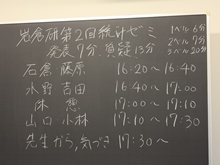 岩倉研第2回統計ゼミ
発表7分、質疑13分
1ベル 6分
2ベル 7分
3ベル 20分
石倉 藤原 16:20〜16:40
水野 吉田 16:40〜17:00
休憩 17:00〜17:10
山口 小林 17:10〜17:30
先生から、気づき 17:30〜